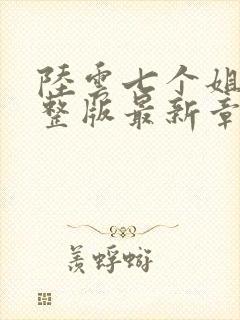 陸雲七个姐
整版最新章
羡蜉蝣